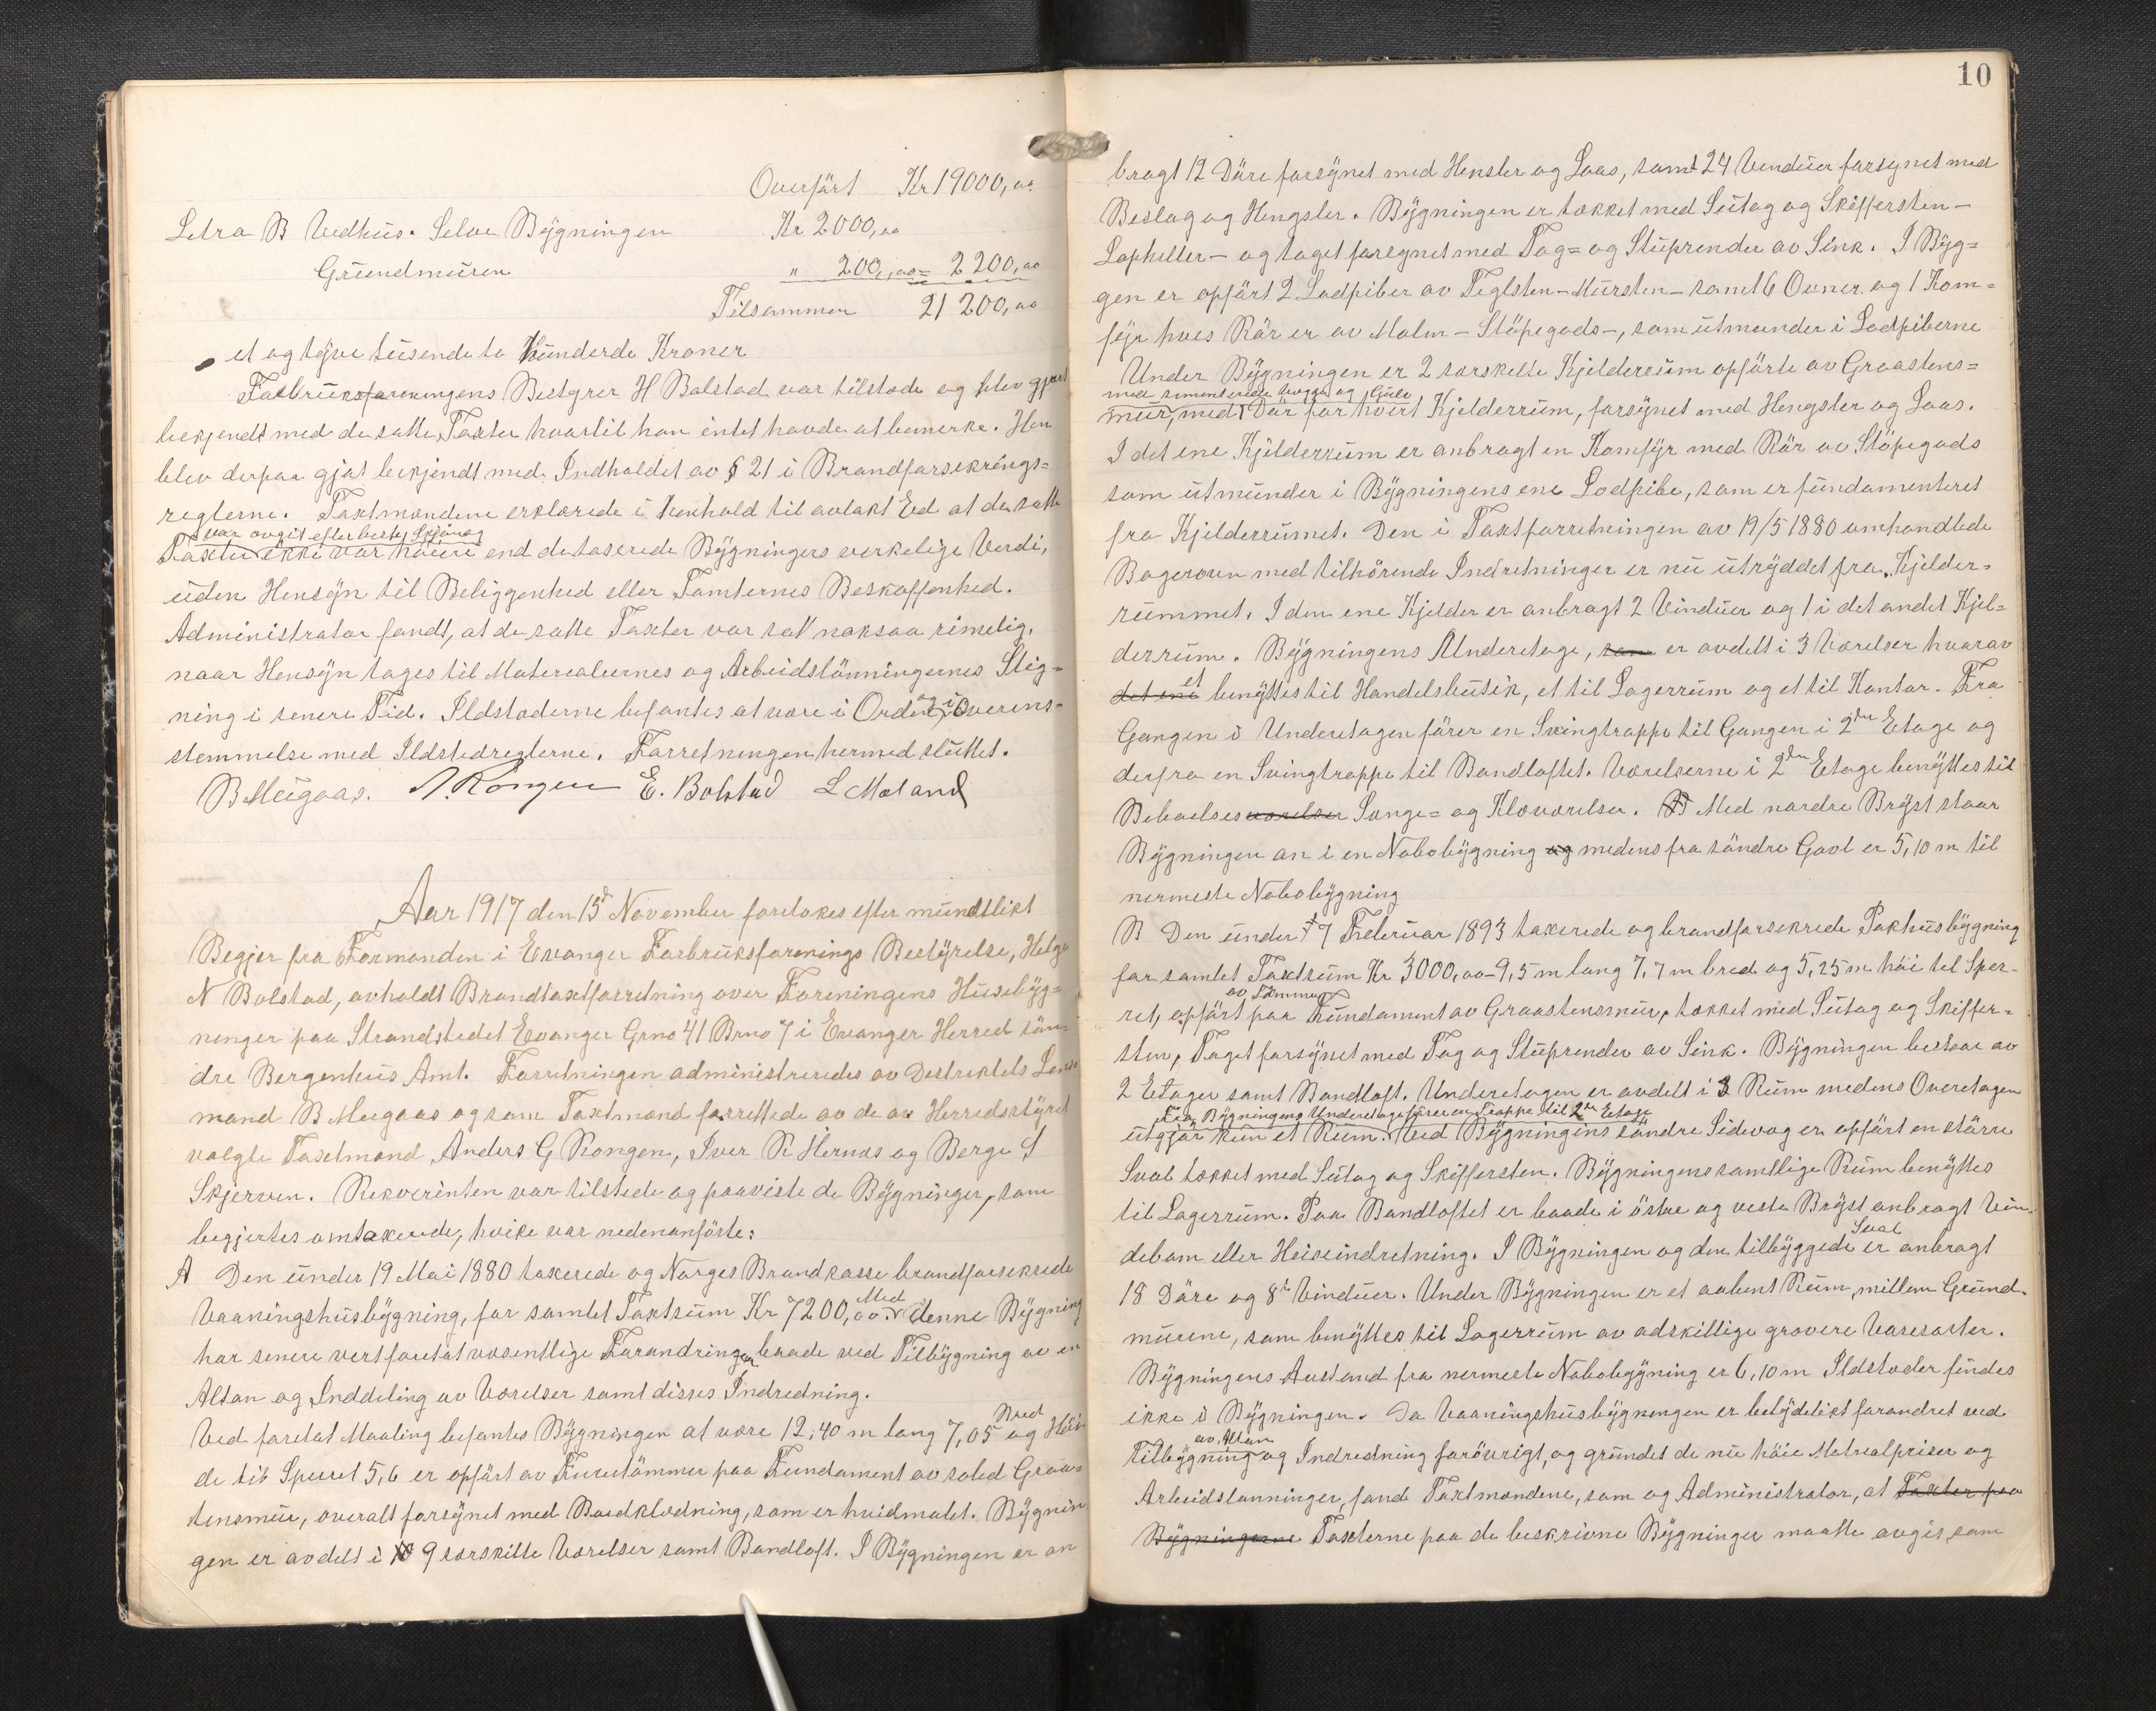 Overført Kr 19000,00
Letra B Vedhus. Selve Bygningen Kr 2000,00
Grundmuren " 200,00 = 2200,00
Tilsammen 21200,00
et og tyve tusende to Hunderde Kroner
Forbruksforeningens Bestyrer H Bolstad var tilstede og blev gjort
bekjendt med de satte Taxter hvartil han intet havde at bemerke. Han
blev derpaa gjort bekjendt med Indholdet av § 21 i Brandforsekrings-
reglerne. Taxtmændene erklærede i henhold til avlakt Ed at de satte
var avgit efter beste Skjøn og
Taxter ikke var høiere end de taxerede Bygningers verkelige Verdi,
uden Hensyn til Beliggenhed eller Tomternes Beskaffenhed.
Administrator fandt, at de satte Taxter var sat noksaa rimelig,
naar Hensyn tages til Materealiernes og Arbeidslønningernes Stig-
ning i senere Tid. Ildstederne befantes at være i Orden og i Overens-
stemmelse med Ildstedreglerne. Forretningen hermed sluttet.
B Meigaas. A. Kongen E. Bolstad L Mæland
Aar 1917 den 15d November foretokes efter mundtlikt
Begjær fra Formanden i Evanger Forbruksforenings Bestyrelse, Helge
N Bolstad, avholdt Brandtaxtforretning over Foreningens Husebyg-
ninger paa Strandstedet Evanger Grno 41 Brno 7 i Evanger Herred søn-
dre Bergenhus Amt. Forretningen administreredes av Destriktets Lens-
mand B Meigaas og som Taxtmænd forrettede av de av Herredsstyret
valgte Taxtmænd Anders G Kongen, Iver K Hernæs og Berge S
Skjerven. Rekvirenten var tilstede og paaviste de Bygninger, som
begjertes omtaxerede, hvike var nedenanførte:
A Den under 19 Mai 1880 taxerede og Norges Brandkasse brandforsekrede
Vaaningshusbygning, for samlet Taxtsum Kr 7200,00. Med denne Bygning
har senere vert foretat væsentlige Forandringer baade ved Tilbygning av en
Altan og Inddeling av Værelser samt disses Indredning.
Ved foretat Maaling befantes Bygningen at være 12,40 m lang 7,05 Bred og Høi-
de til Sperret 5,6 er opført av Furutømmer paa Fundament av soled Graas-
tensmur, overalt forsynet med Bordklædning, som er hvidmalet. Bygnin
gen er avdelt i 9 særskilte Værelser samt Bandloft. I Bygningen er an
10
bragt 12 Døre forsynet med Hensler og Laas, samt 24 Venduer forsynet med
Beslag og Hengsler. Bygningen er tækket med Sutag og Skiffersten-
Lapheller- og taget forsynet med Tag= og Stuprender av Sink. I Byg=
gen er opført 2 Lodpiber av Teglsten-Mursten- samt 6 Ovner og 1 Kom=
fyr hves Rør er av Malm-Støpegods-, som utmunder i Lodpiberne
Under Bygningen er 2 særskelte Kjelderrum opførte av Graastens=
med sementerede Vegge og Gulv
mur, med 1 Dør for hvert Kjelderrum, forsynet med Hengsler og Laas.
I det ene Kjelderrum er anbragt en Komfyr med Rør av Støpegods
som utmunder i Bygningens ene Lodpibe, som er fundamenteret
fra Kjelderrumet. Den i Taxtforretningen av 19/5 1880 omhandlede
Bagerovn med tilhørende Indretninger er nu utryddet fra Kjelder-
rummet. I den ene Kjelder er anbragt 2 Vinduer og 1 i det andet Kjel-
derrum. Bygningens Underetage, som er avdelt i 3 Værelser hvorav
det ene et benyttes til Handelsbutik, et til Lagerrum og et til Kontor. Fra
Gangen i Underetagen fører en Svingtrappe til Gangen i 2den Etage og
derfra en Svingtrappe til Bandloftet. Værelserne i 2den Etage benyttes til
Beboelsesværelser Senge= og Kloværelser. Med nordre Bryst staar
Bygningen an i en Nabobygning og medens fra søndre Gavl er 5,10 m til
nermeste Nabobygning
B Den under 7 Februar 1893 taxerede og brandforsekrede Pakhusbygning
for samlet Taxtsum Kr 3000,00 - 9,5 m lang 7,7 m bred og 5,25 m høi til Sper-
av Tømmer
ret, opført paa Fundament av Graastensmur, tækket med Sutag og Skiffer-
sten, Taget forsynet med Tag og Stuprender av Sink. Bygningen bestaar av
2 Etager samt Bandloft. Underetagen er avdelt i 3 Rum medens Overetagen
Fra Bygningens Underetage fører en Trappe til 2den Etage
utgjør kun et Rum. Ved Bygningens søndre Sidevæg er opført en større
Sval tækket med Sutag og Skiffersten. Bygningens samtlige Rum benyttes
til Lagerrum. Paa Bandloftet er baade i østre og vestre Bryst anbragt Vin-
debom eller Heiseindretning. I Bygningen og den tilbyggede Sval er anbragt
18 Døre og 8te Vinduer. Under Bygningen er et aabent Rum, mellem Grund-
murene, som benyttes til Lagerrum av adskillige grovere Varesorter.
Bygningens Avstand fra nermeste Nabobygning er 6,10 m Ildsteder findes
ikke i Bygningen. Da Vaaningshusbygningen er betydelikt forandret ved
av Altan
Tilbygning og Indredning forøvrigt, og grundet de nu høie Matrealpriser og
Arbeidslønninger, fandt Taxtmændene, som og Administrator, at Taxter paa
Bygningerne Taxterne paa de beskrivne Bygninger maatte avgis som